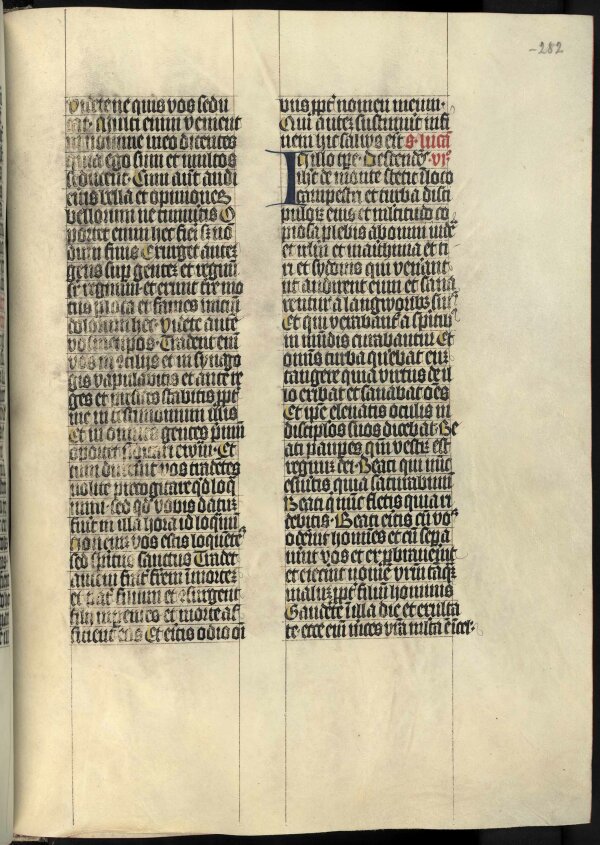 -282
Videte ne quis vos sedu
cat. Multi enim venient
in nomine meo dicentes
quia ego sum et multos
seducent. Cum aut audi
eritis bella et opiniones
bellorum ne timueritis O
portet enim hec fieri sz no
dum finis Exurget autez
gens sup gentez et regnu
sr regnum et erunt tre mo
tus p loca et fames inciu
dolorum hec. Videte aute
vosmetipos. Tradent eni
vos in ꝯciliis et in synago
gis vapulabitis et ante re
ges et presides stabitis ppt
me in testimonium illis
Et in omnes gentes primu
oportet predicari ewm. Et
cum duxerint vos tradetes
nolite precogitare qd loq
mini. sed qd vobis datuz
fuit in illa hora id loqmini
Non enim vos estis loquetes
sed spiritus sanctus Tradet
autem frat frem in mortez
et pat filium et ꝯsurgent
filii in parentes et morte af
ficient eos Et eritis odio oi
bus ppt nomen meum.
Qui autez sustinuerit in fi
nem hic salvus erit S. luca
In illo tpe. Descendes vi
ihc de monte stetit i loco
campestri et turba disci
puloz eius et multitudo co
piosa plebis ab omni iude
et ierlm et maritima et ti
ri et sydonis qui venerant
ut audirent eum et sana
rentur a langworibus suis
Et qui vexabant a spiritu
in mundis curabantur Et
omis turba querebat eum
tangere quia virtus de il
lo exibat et sanabat oes
Et ipe elevatis oculis in
disciplos suos dicebat. Be
ati paupes qui vestrum est
regnum dei. Beati qui nuc
esuritis quia saturabimi
Beati q nunc fletis quia ri
debitis. Beati eritis cu vos
oderint homines et cu sepa
rint vos et exprobraverint
et eiecerint nomen vrm tamq
malum ppt filium hominis
Gaudete i illa die et exulta
te ecce eni merces vra mlta e i cel.